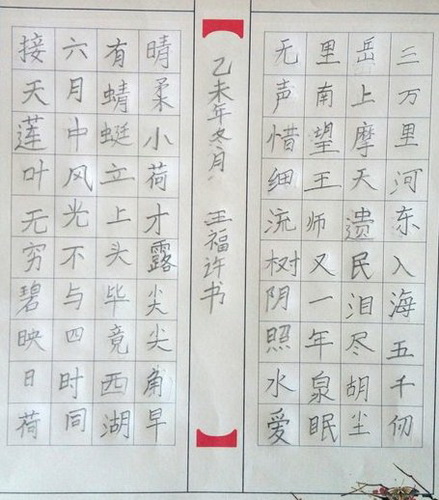 三万里河东入海五千仞
岳上摩天遗民泪尽胡尘
里南望王师又一年泉眠
无声惜细流树阴照水爱
乙未年冬月 王福许书
晴柔小荷才露尖尖角早
有蜻蜓立上头毕竟西湖
六月中风光不与四时同
接天莲叶无穷碧映日荷